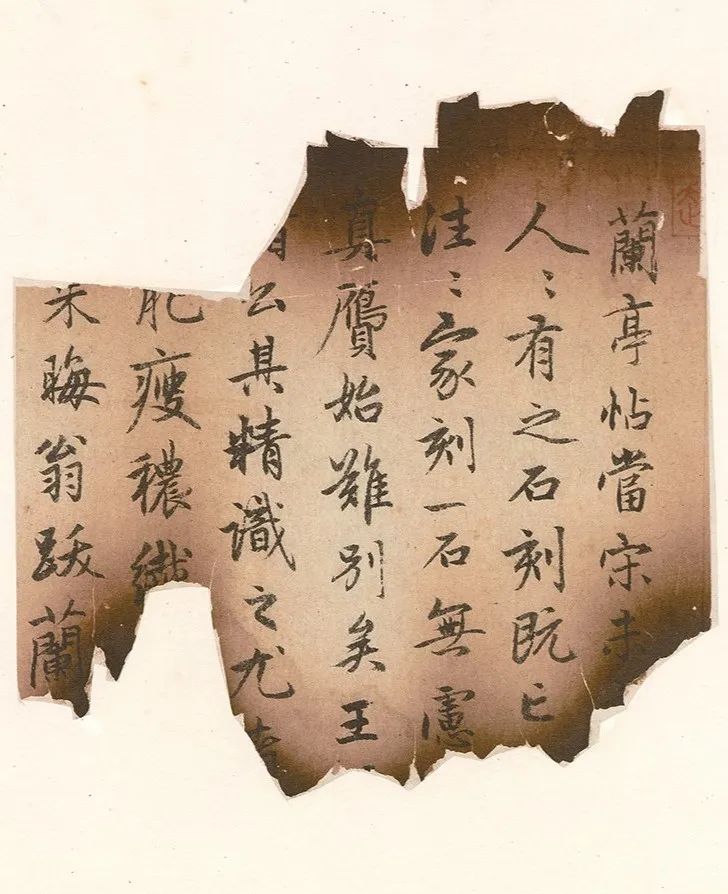 蘭亭帖當宋未
人〻有之石刻既亡
家刻一石無慮
真贋始難別矣王
公其精識之尤
肥瘦穠纖
朱晦翁跋蘭